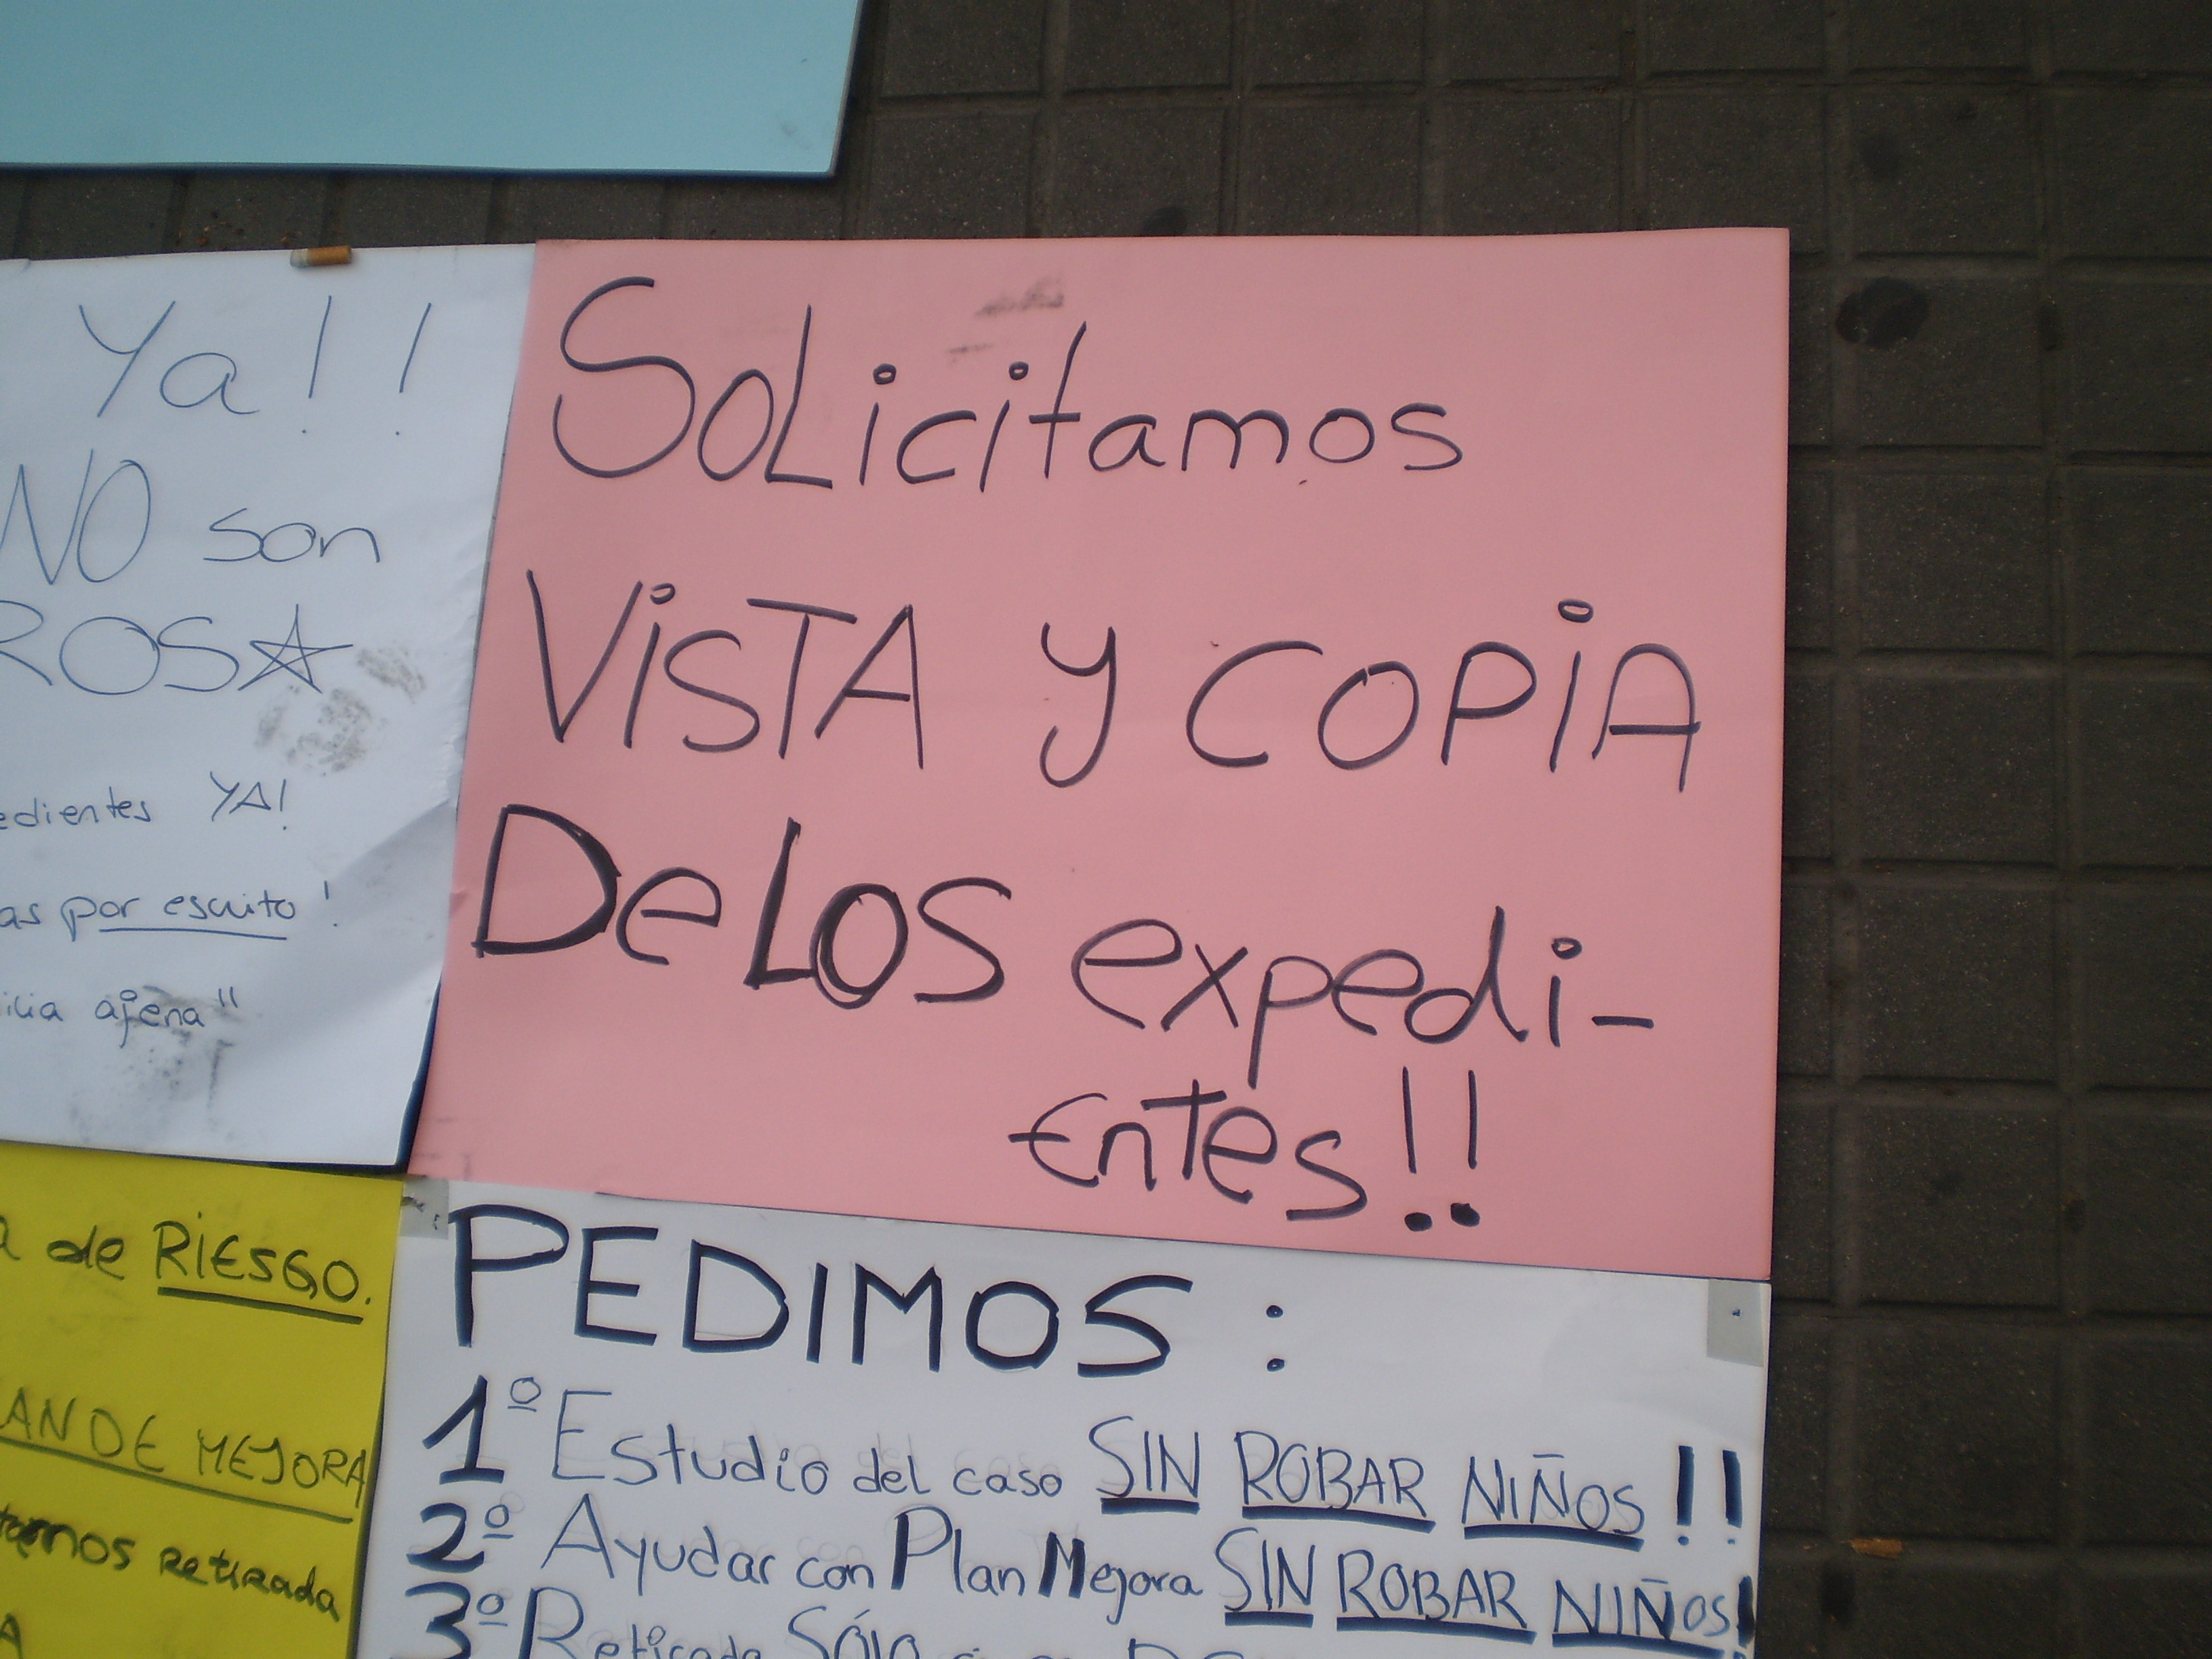 Ya!!
NO son
ROS☆
edientes YA!
as por escrito!
ilia ajena"
SoLicitamos
ViSTA y COPiA
DeLOS expedi-
Entes!!
a de RiESGO.
AN DE MEJORA
temos Retirada
A
PEDIMOS:
1º Estudio del caso SIN ROBAR NIÑOS!!
2º Ayudar con Plan Mejora SIN ROBAR NIÑOS!
3º Retirada SÓLO